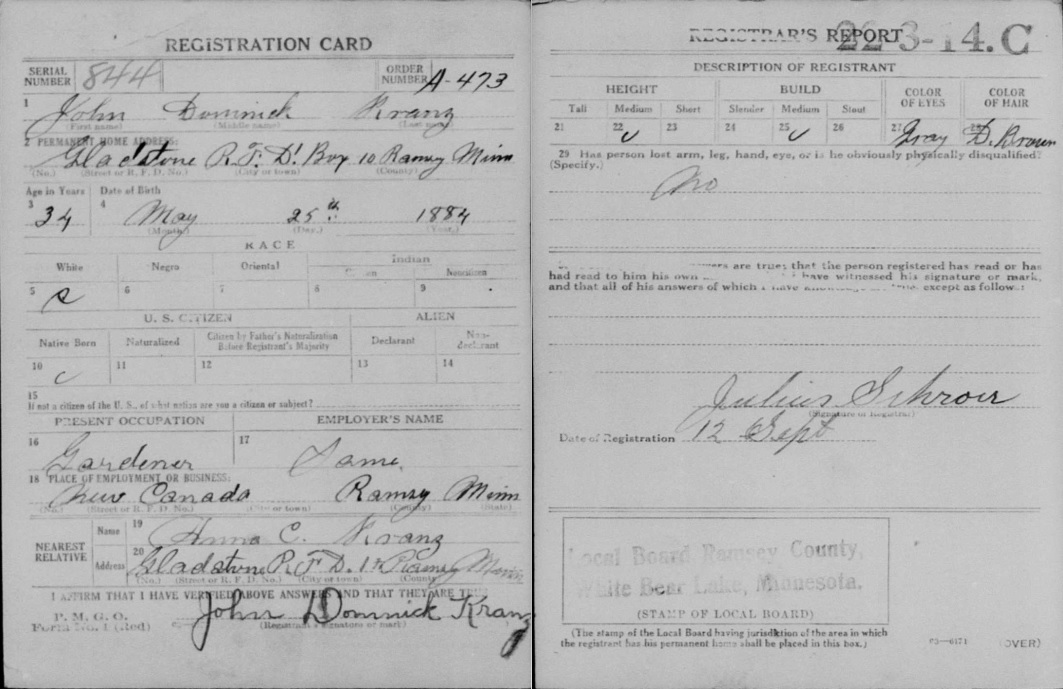 REGISTRATION CARD
SERIAL NUMBER 844 ORDER NUMBER A-473
1 John Dominick Kranz
(First name) (Middle name) (Last name)
2 PERMANENT HOME ADDRESS:
Gladstone R.F.D. Box 10 Ramsy Minn
(No.) (Street or R. F. D. No.) (City or town) (County)
Age in Years Date of Birth
3 34 4 May 25th 1884
(Month) (Day.) (Year.)
RACE
White Negro Oriental Indian
Citizen Noncitizen
5 6 7 8 9
U. S. CITIZEN ALIEN
Native Born Naturalized Citizen by Father's Naturalization Before Registrant's Majority Declarant Non-declarant
10 11 12 13 14
15
If not a citizen of the U. S., of what nation are you a citizen or subject?
PRESENT OCCUPATION EMPLOYER'S NAME
16 Gardener 17 Same.
18 PLACE OF EMPLOYMENT OR BUSINESS:
New Canada Ramsy Minn
(No.) (Street or R. F. D. No.) (City or town) (County) (State)
NEAREST RELATIVE
Name 19 Anna C. Kranz
Address 20 Gladstone R.F.D. 1 Ramsy Minn
(No.) (Street or R. F. D. No.) (City or town) (County)
I AFFIRM THAT I HAVE VERIFIED ABOVE ANSWERS AND THAT THEY ARE TRUE
P. M. G. O.
Form No. 1 (Red)
John Dominick Kranz
(Registrant's signature or mark)
REGISTRAR'S REPORT 22-3-14. C
DESCRIPTION OF REGISTRANT
HEIGHT BUILD COLOR OF EYES COLOR OF HAIR
Tall Medium Short Slender Medium Stout
21 22 23 24 25 26 27 Gray 28 D. Brown
29 Has person lost arm, leg, hand, eye, or is he obviously physically disqualified?
(Specify.) No
are true; that the person registered has read or has
had read to him his own I have witnessed his signature or mark,
and that all of his answers of which I have knowledge are true, except as follows:
Julius Schroer
(Signature of Registrar)
Date of Registration 12 Sept
Local Board Ramsey County,
White Bear Lake, Minnesota.
(STAMP OF LOCAL BOARD)
(The stamp of the Local Board having jurisdiction of the area in which
the registrant has his permanent home shall be placed in this box.)
03—6171 (OVER)